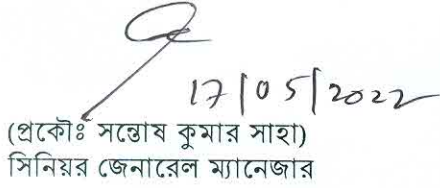 17/05/2022
(প্রকৌঃ সন্তোষ কুমার সাহা)
সিনিয়র জেনারেল ম্যানেজার